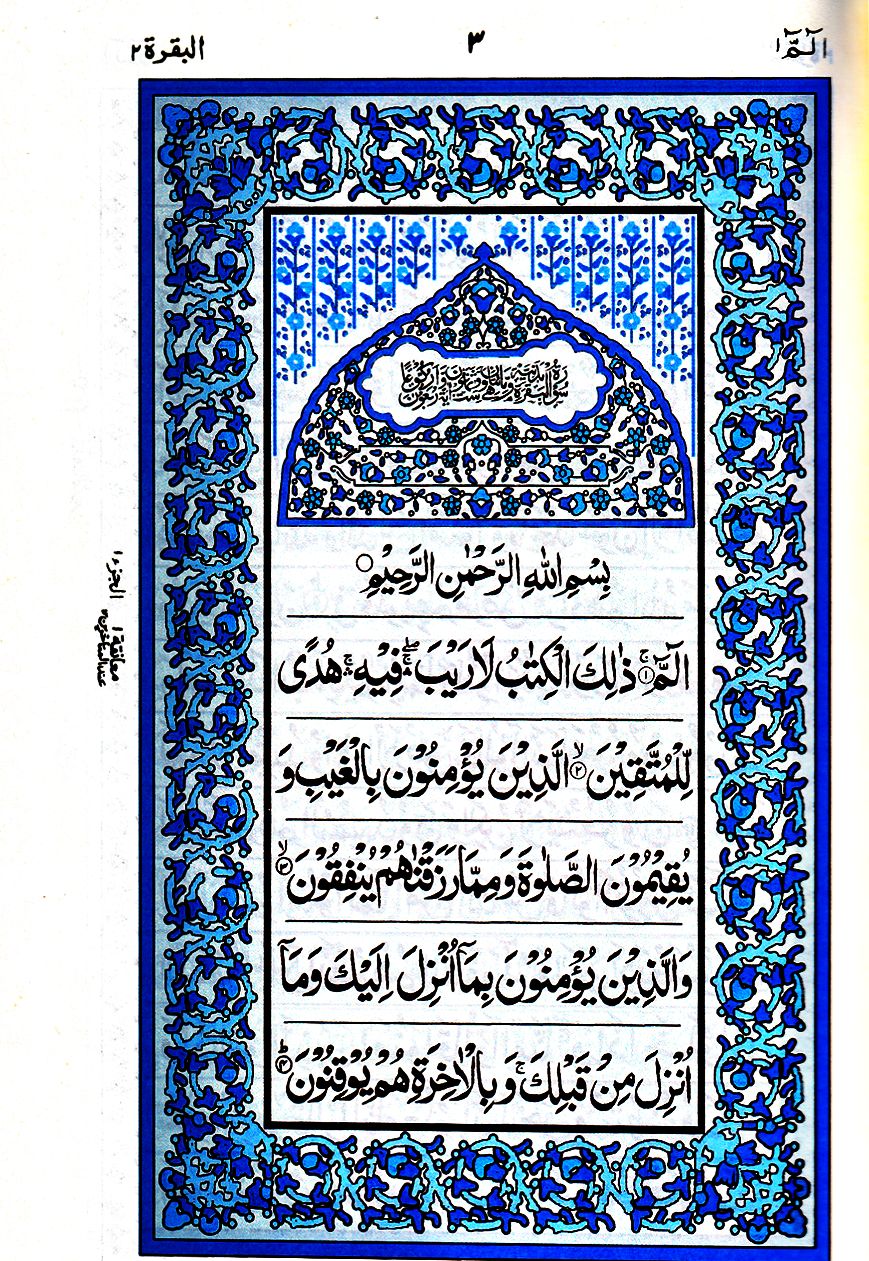 الٓمّٓ ١
٣
البقرة ٢
بِسْمِ اللّٰهِ الرَّحْمٰنِ الرَّحِيْمِ ○
الٓمّٓ ۚ﴿١﴾ ذٰلِكَ الْكِتٰبُ لَا رَيْبَ ۖۛ فِيْهِ ۚۛ هُدًى
لِّلْمُتَّقِيْنَ ۙ﴿٢﴾ الَّذِيْنَ يُؤْمِنُوْنَ بِالْغَيْبِ وَ
يُقِيْمُوْنَ الصَّلٰوةَ وَمِمَّا رَزَقْنٰهُمْ يُنْفِقُوْنَ ۙ﴿٣﴾
وَالَّذِيْنَ يُؤْمِنُوْنَ بِمَآ اُنْزِلَ اِلَيْكَ وَمَآ
اُنْزِلَ مِنْ قَبْلِكَ ۚ وَبِالْاٰخِرَةِ هُمْ يُوْقِنُوْنَ ؕ﴿٤﴾
الجزء ١